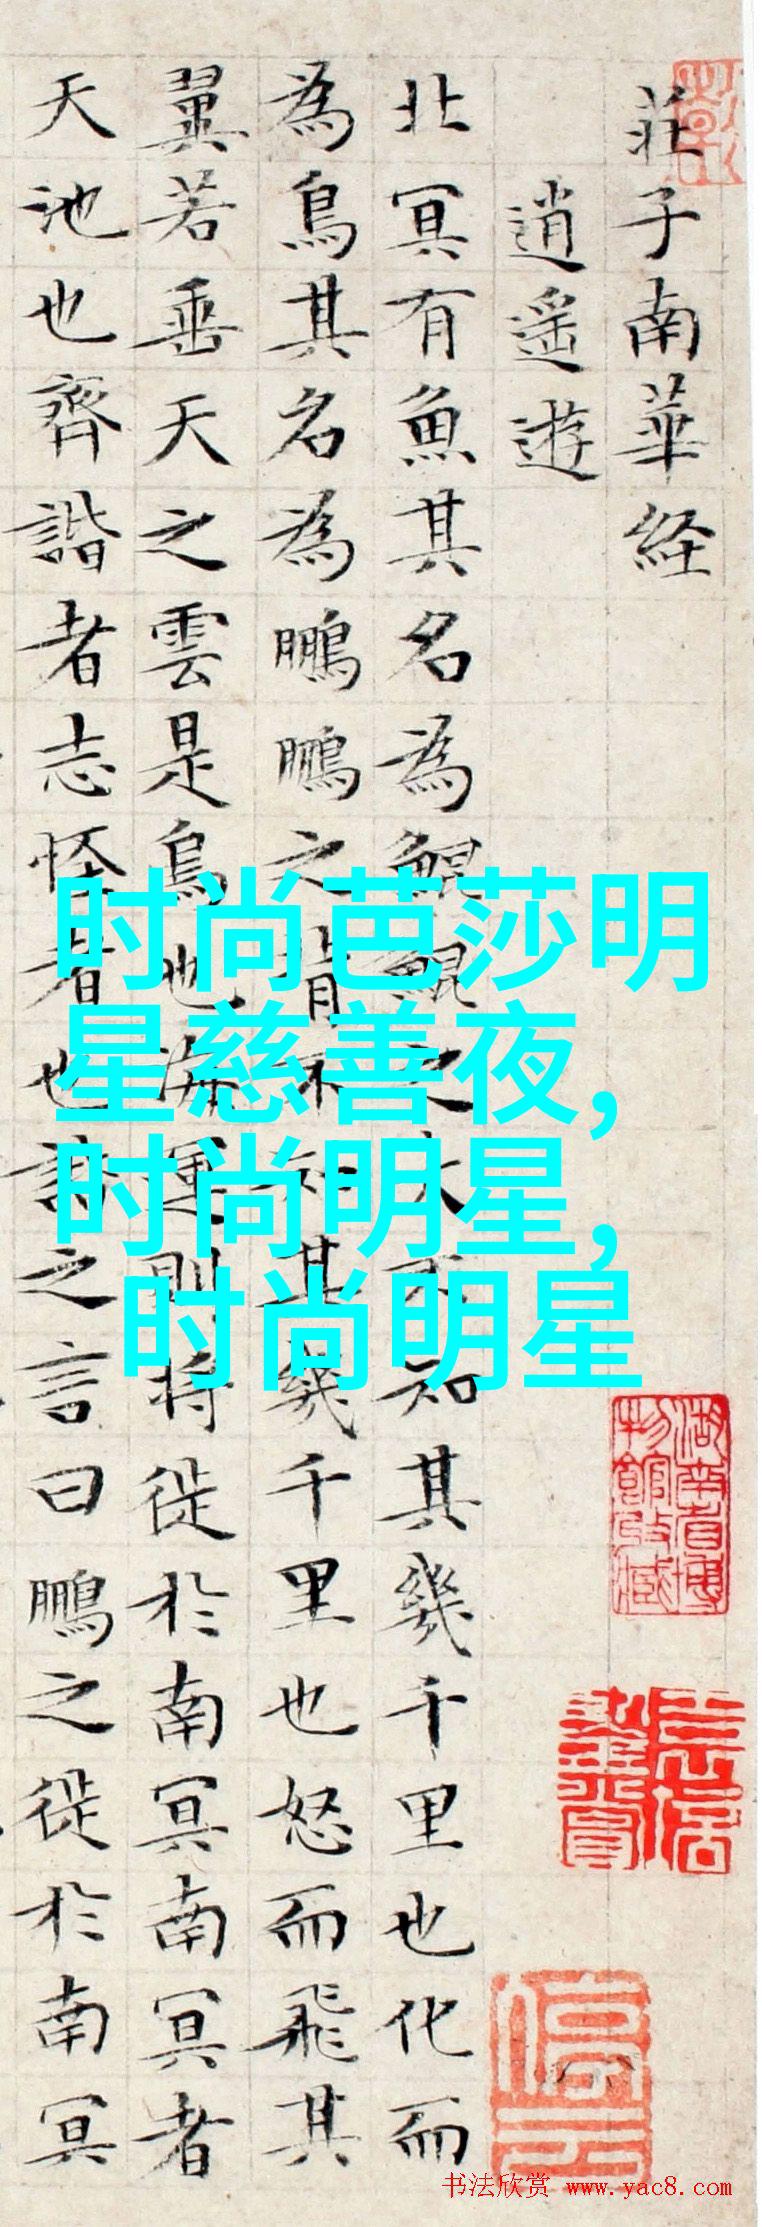 莊子南華経
逍遥遊
北冥有魚其名為鯤鯤之大不知其幾千里也化而
為鳥其名為鵬鵬之背不知其幾千里也怒而飛其
翼若垂天之雲是鳥也海運則將徙於南冥南冥者
天池也齊諧者志怪者也諧之言曰鵬之徙於南冥
时尚芭莎明
星慈善夜,
时尚明星,
时尚明星
湖南省博
物館收藏
停云
书法欣赏 www.yac8.com